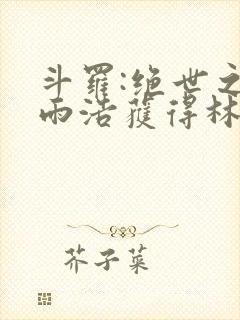 斗羅:绝世之
雨浩獲得林
芥子菜